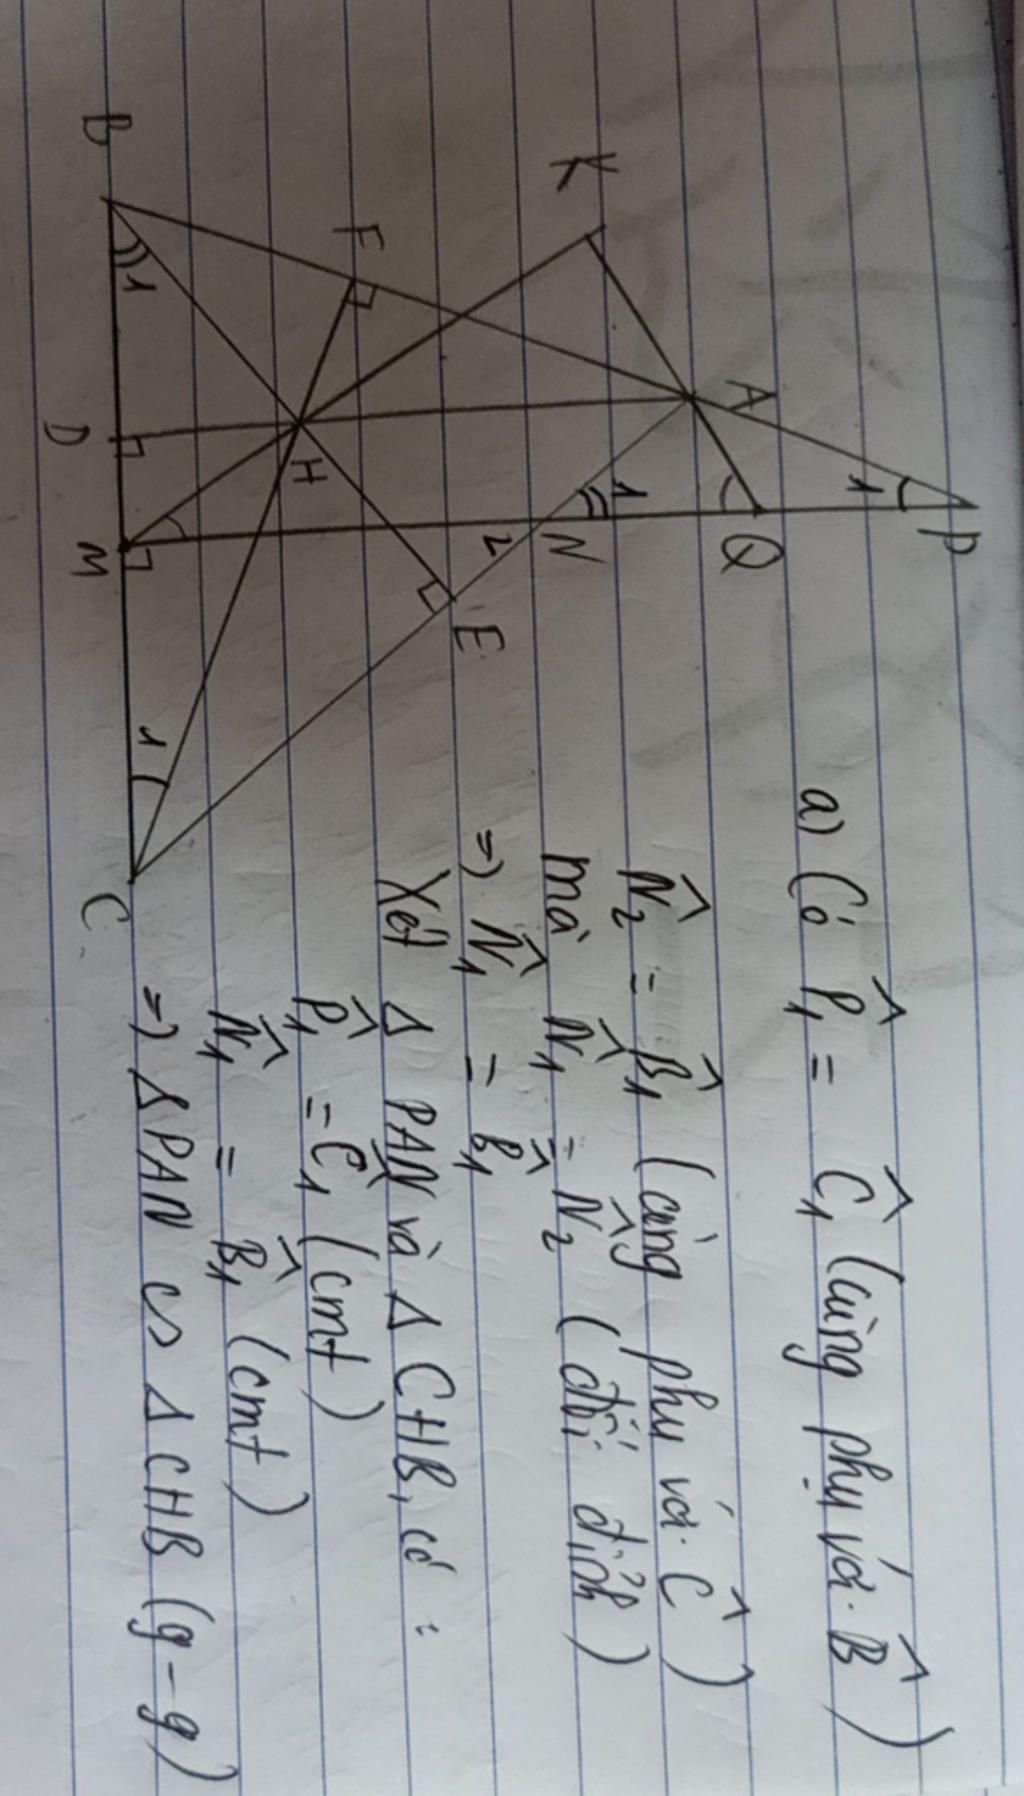 P
Q
1
A
K
1
N
2
E
F
H
1
1
B
D
M
C
a) Có P̂₁ = Ĉ₁ (cùng phụ với B̂)
N̂₂ = B̂₁ (cùng phụ với Ĉ)
mà N̂₁ = N̂₂ (đối đỉnh)
=> N̂₁ = B̂₁
Xét Δ PAN và Δ CHB, có :
P̂₁ = Ĉ₁ (cmt)
N̂₁ = B̂₁ (cmt)
=> Δ PAN ∽ Δ CHB (g-g)